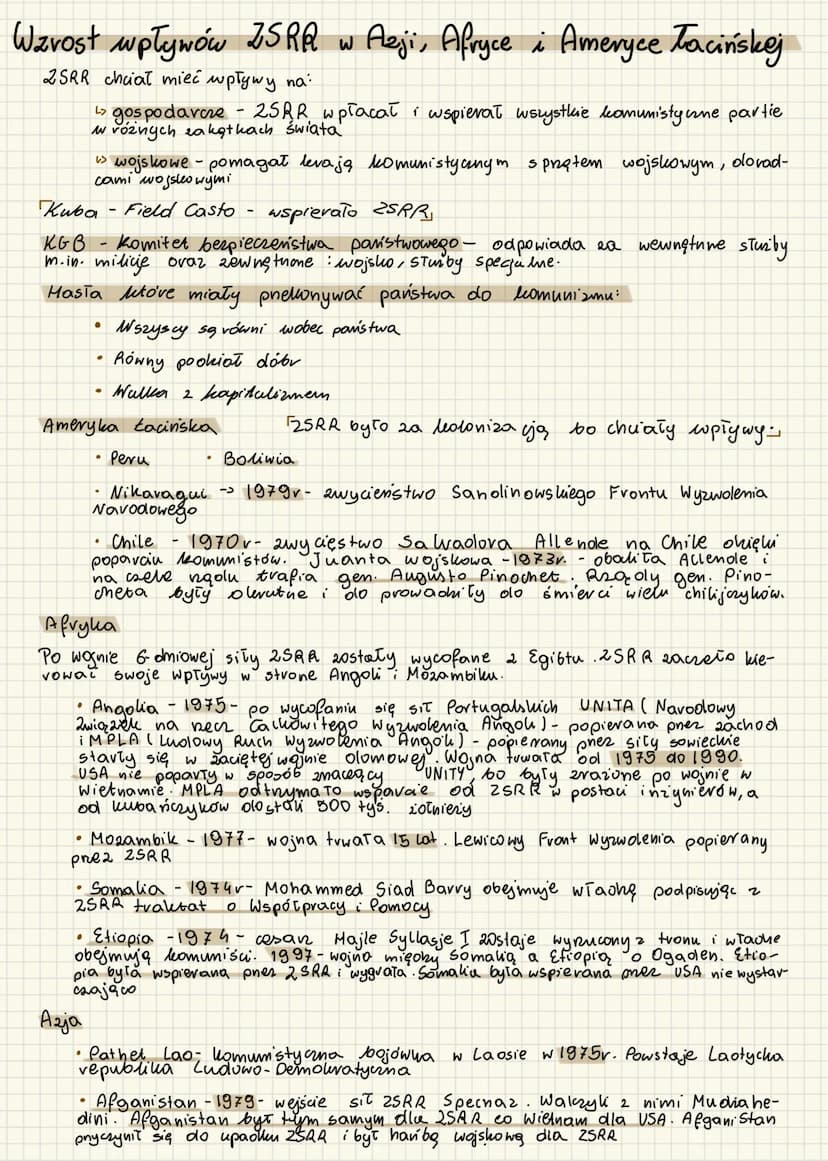 Wzrost wpływów ZSRR w Azji, Afryce i Ameryce Łacińskiej
ZSRR chciał mieć wpływy na:
↳ gospodarcze - ZSRR wpłacał i wspierał wszystkie komunistyczne partie
w różnych zakątkach świata
↳ wojskowe - pomagał krają komunistycznym sprzętem wojskowym, dorad-
cami wojskowymi
Kuba - Field Casto - wspierało ZSRR
KGB - Komitet bezpieczeństwa państwowego - odpowiada za wewnętrzne służby
m.in. milicję oraz zewnętrzne: wojsko, służby specjalne.
Hasła które miały przekonywać państwa do komunizmu:
• Wszyscy są równi wobec państwa
• Równy podział dóbr
• Walka z kapitalizmem
Ameryka Łacińska
ZSRR było za kolonizacją bo chciały wpływy.
• Peru • Boliwia
• Nikaragui -> 1979r - zwycieństwo Sandinowskiego Frontu Wyzwolenia
Narodowego
• Chile - 1970r - zwycięstwo Salwadora Allende na Chile dzięki
poparciu komunistów. Juanta wojskowa - 1973r. - obaliła Allende i
na czele rządu trafia gen. Augusto Pinochet. Rządy gen. Pino-
cheta były okrutne i do prowadziły do śmierci wielu chilijczyków.
Afryka
Po wojnie 6-dniowej siły ZSRR zostały wycofane z Egibtu. ZSRR zaczęło kie-
rować swoje wpływy w strone Angoli i Mozambiku.
• Angolia - 1975 - po wycofaniu się sił Portugalskich UNITA (Narodowy
Związek na rzecz Całkowitego Wyzwolenia Angoli) - popierana przez zachód
i MPLA (Ludowy Ruch Wyzwolenia Angoli) - popierany przez siły sowieckie
starły się w zaciętej wojnie domowej. Wojna trwała od 1975 do 1990.
USA nie poparły w sposób znaczący UNITY, bo były zrażone po wojnie w
Wietnamie. MPLA odtrzymało wsparcie od ZSRR w postaci inżynierów, a
od kubańczyków dostali 500 tyś. żołnierzy
• Mozambik - 1977 - wojna trwała 15 lat. Lewicowy Front Wyzwolenia popierany
przez ZSRR
• Somalia - 1974r - Mohammed Siad Barry obejmuje władzę podpisując z
ZSRR traktat o Współpracy i Pomocy
• Etiopia - 1974 - cesarz Hajle Syllasje I zostaje wyrzucony z tronu i władze
obejmują komuniści. 1997 - wojna między Somalią a Etiopią o Ogaden. Etio-
pia była wspierana przez ZSRR i wygrała. Somalia była wspierana przez USA nie wystar-
czająco
Azja
• Pathet Lao - komunistyczna bojówka w Laosie w 1975r. Powstaje Laotycka
republika Ludowo-Demokratyczna
• Afganistan - 1979 - wejście sił ZSRR Specnaz. Walczyli z nimi Mudżahe-
dini. Afganistan był tym samym dla ZSRR co Wietnam dla USA. Afganistan
przyczynił się do upadku ZSRR i był hańbą wojskową dla ZSRR